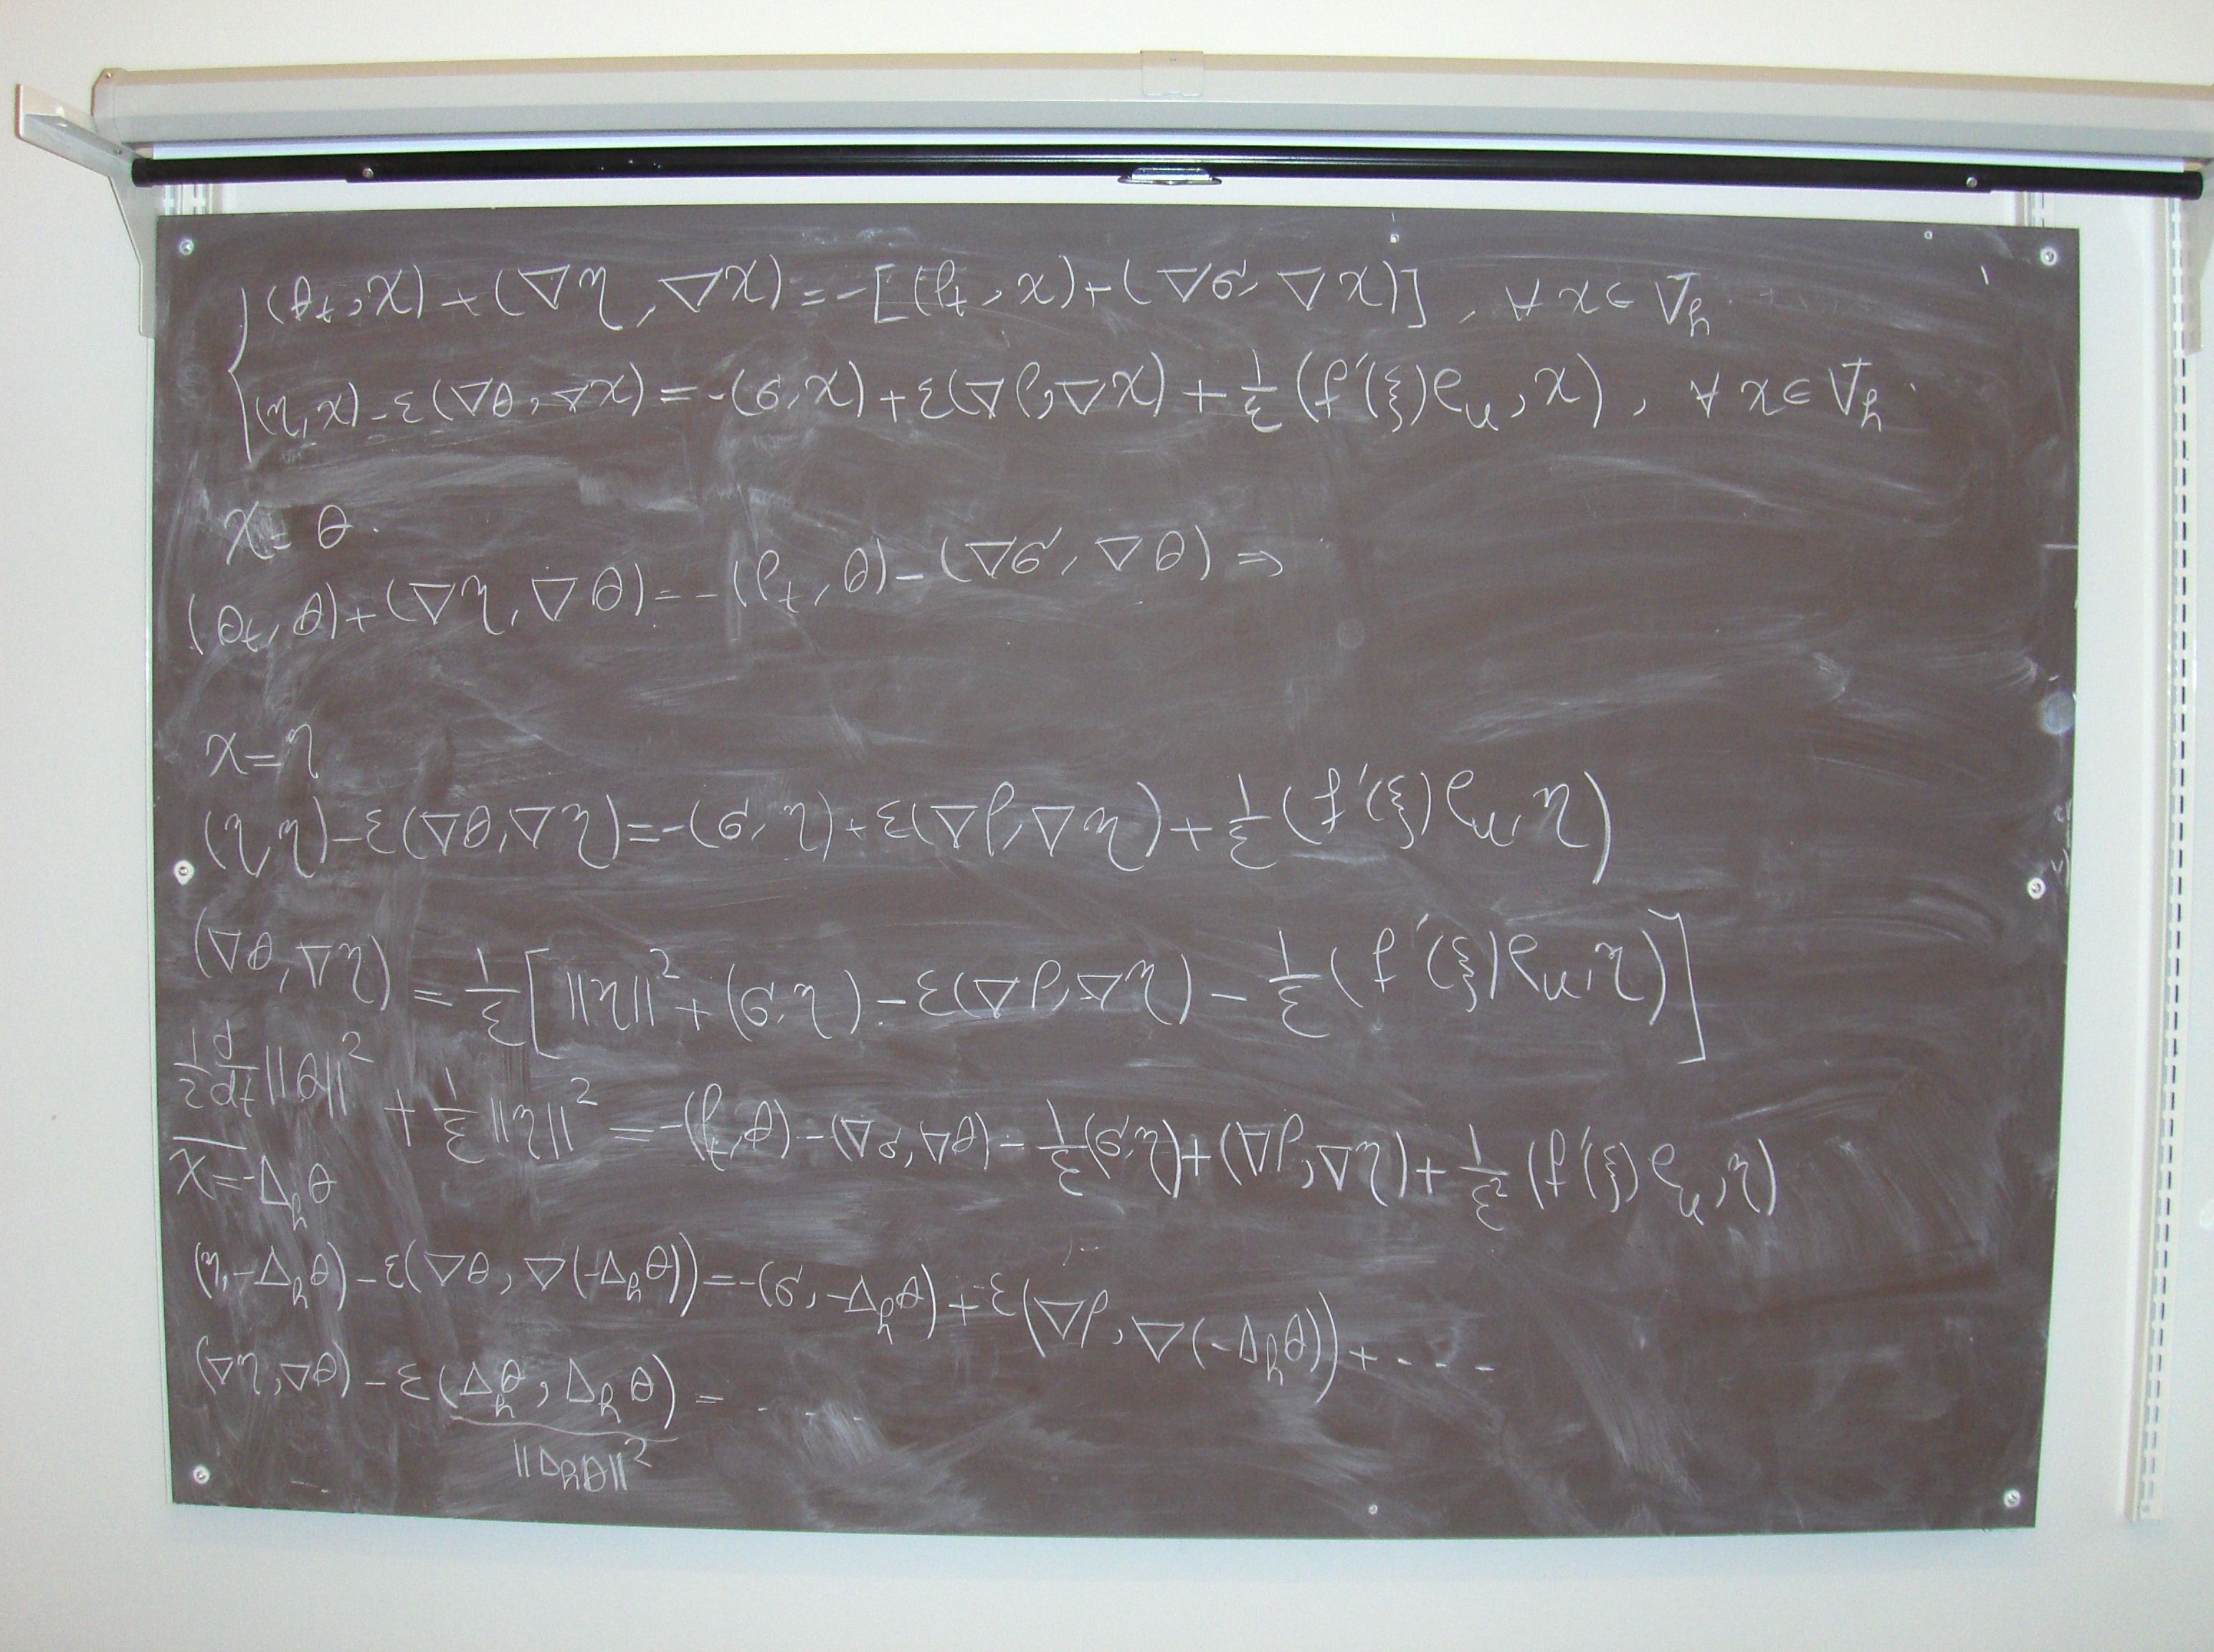 (θ_t, χ) + (∇η, ∇χ) = -[(ρ_t, χ) + (∇σ, ∇χ)], ∀ χ ∈ V_h
(η, χ) - ε(∇θ, ∇χ) = -(σ, χ) + ε(∇ρ, ∇χ) + 1/ε (f'(ξ)e_u, χ), ∀ χ ∈ V_h.
χ = θ.
(θ_t, θ) + (∇η, ∇θ) = -(ρ_t, θ) - (∇σ, ∇θ) ⇒
χ = η
(η, η) - ε(∇θ, ∇η) = -(σ, η) + ε(∇ρ, ∇η) + 1/ε (f'(ξ)e_u, η)
(∇θ, ∇η) = 1/ε [||η||² + (σ, η) - ε(∇ρ, ∇η) - 1/ε (f'(ξ)e_u, η)]
1/2 d/dt ||θ||² + 1/ε ||η||² = -(ρ_t, θ) - (∇σ, ∇θ) - 1/ε (σ, η) + (∇ρ, ∇η) + 1/ε² (f'(ξ)e_u, η)
χ = -Δ_hθ
(η, -Δ_hθ) - ε(∇θ, ∇(-Δ_hθ)) = -(σ, -Δ_hθ) + ε(∇ρ, ∇(-Δ_hθ)) + - - -
(∇η, ∇θ) - ε(Δ_hθ, Δ_hθ) = - - - -
||Δ_hθ||²